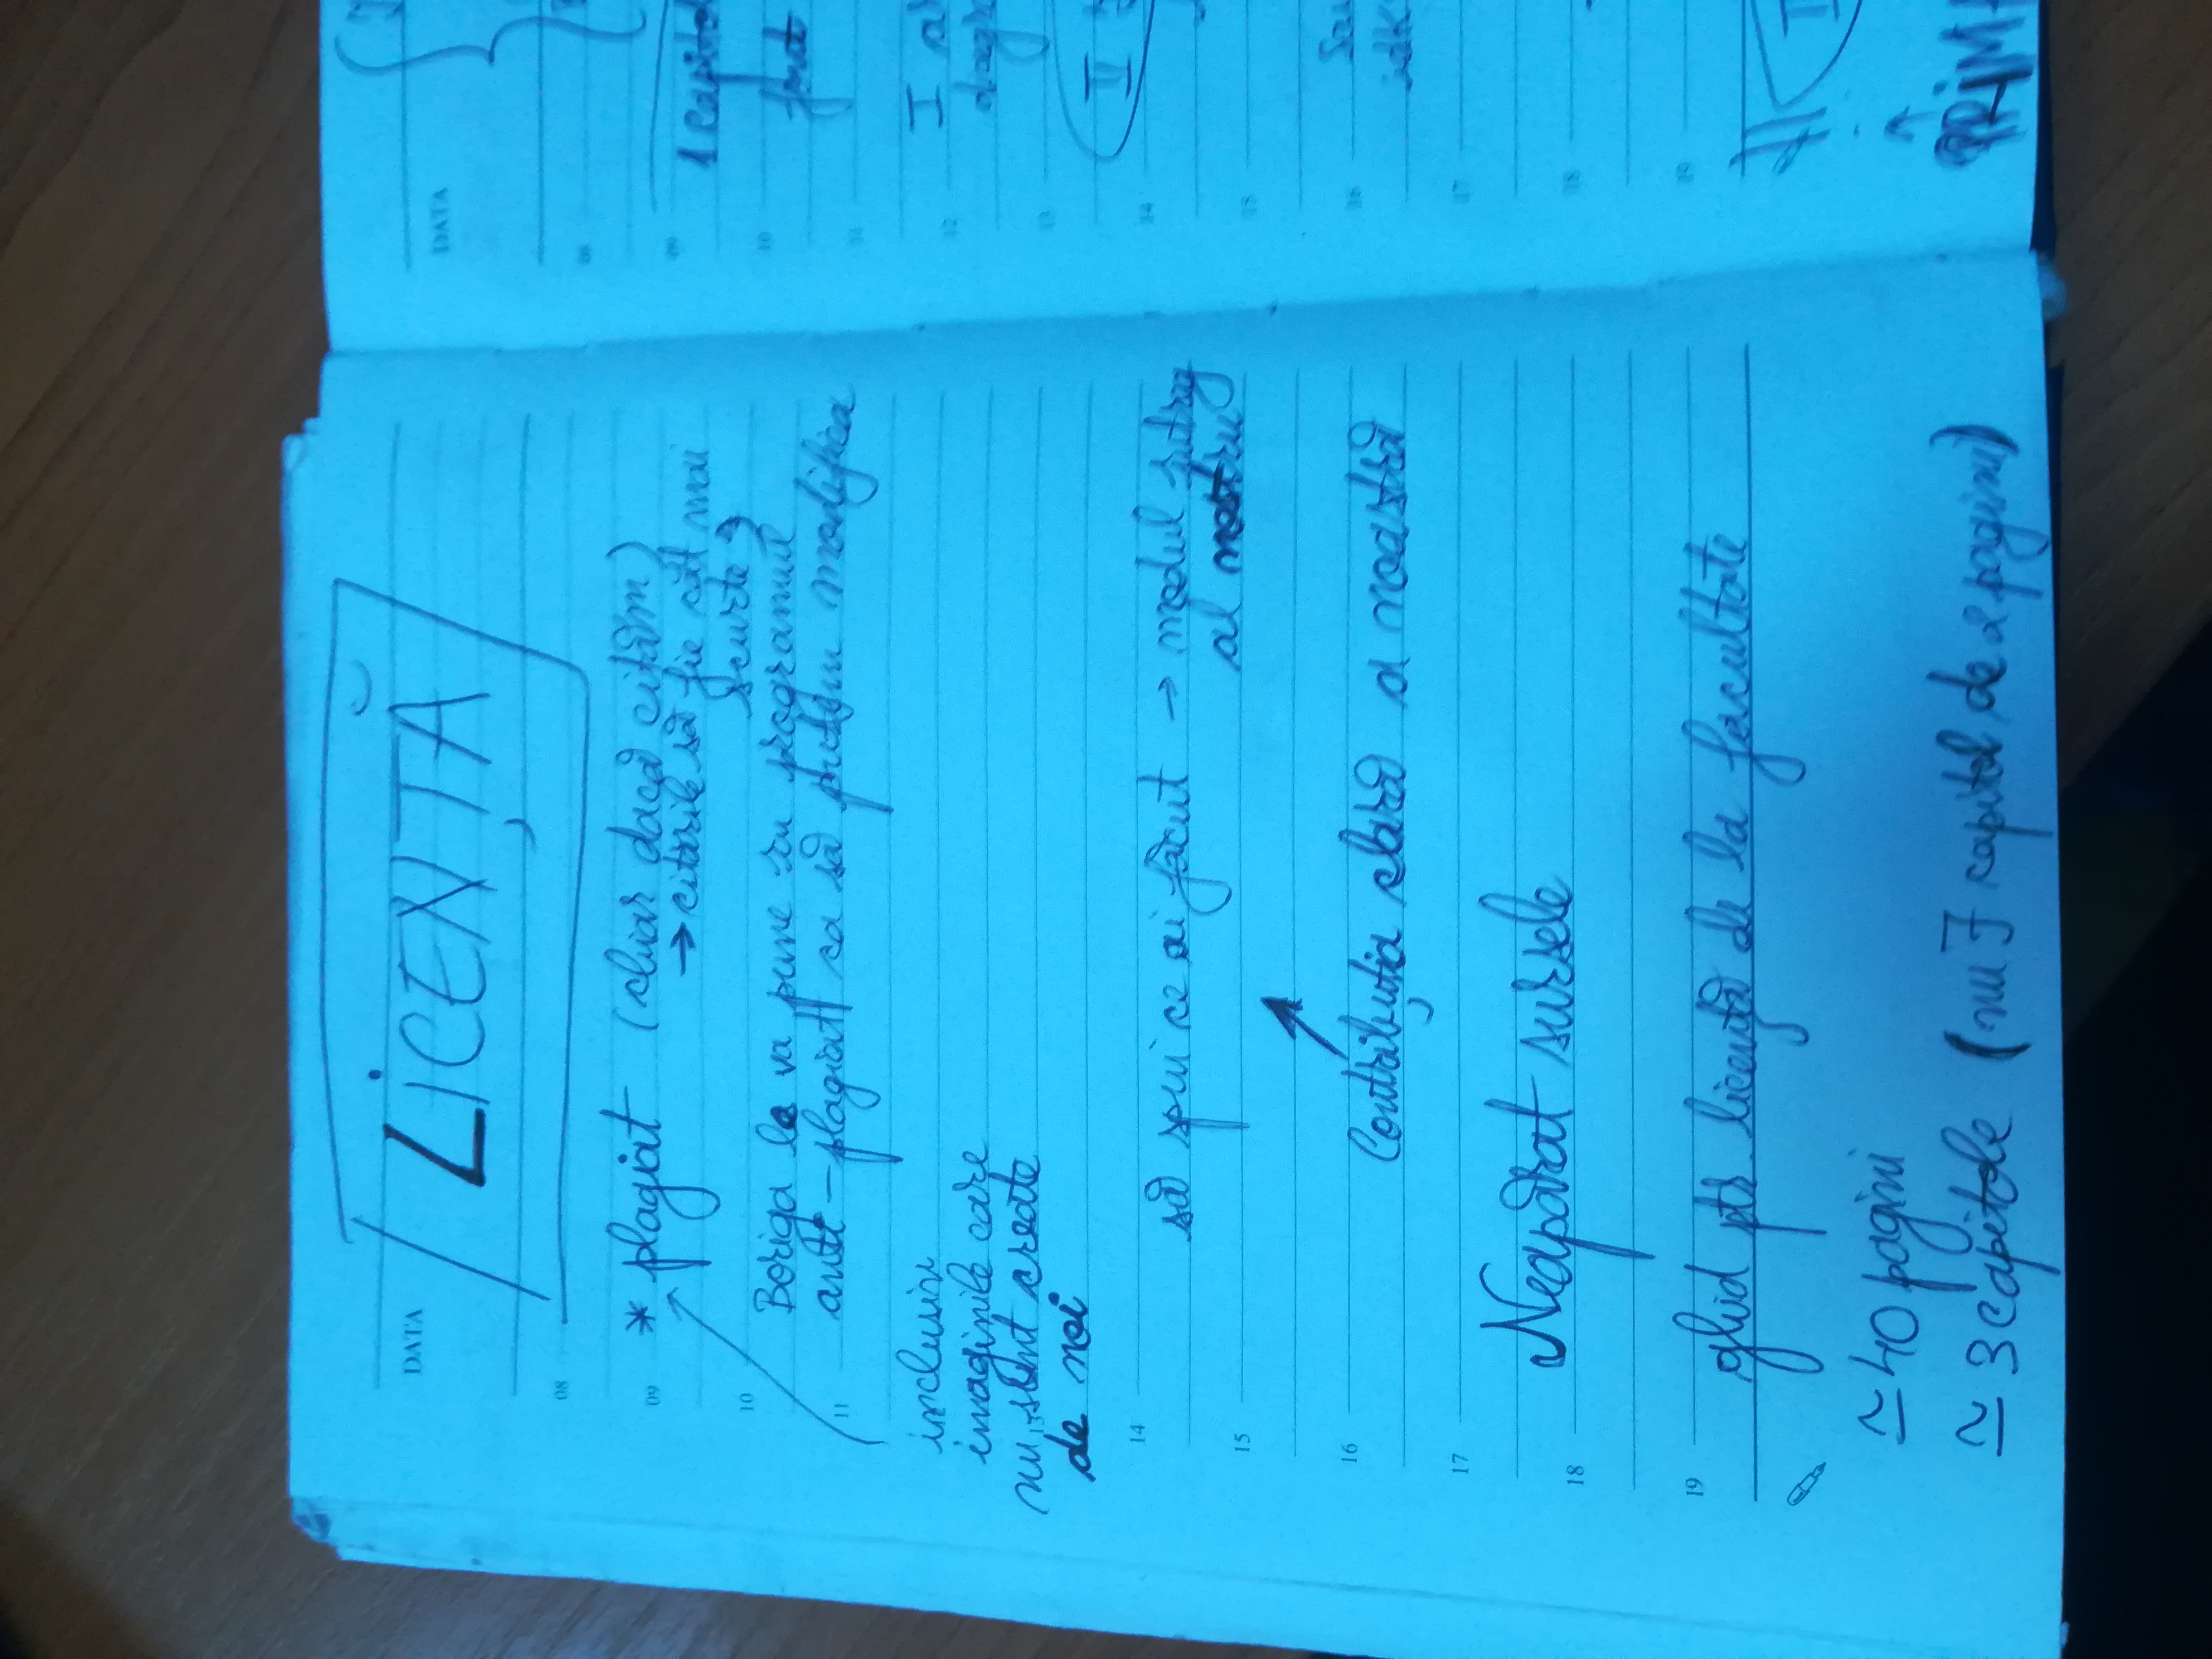 DATA
LiCENȚĂ
08
09 * plagiat (chiar dacă cităm)
→ citările să fie cât mai
scurte
10
Boriga le va pune în programul
11 anti-plagiat ca să putem modifica
inclusiv
imaginile care
nu sunt create
13
de noi
14
să spui ce ai făcut → modul întreg
al nostru
15
16
Contribuția clară a noastră
17
Neapărat sursele
18
19
ghid ptr. licență de la facultate
≃ 40 pagini
≃ 3 capitole (nu 7 capitol de 2 pagini)
DATA
08
09
1 capitol
10
font
11
I
12
13
II
14
15
16
idk
17
18
19
PRIMA